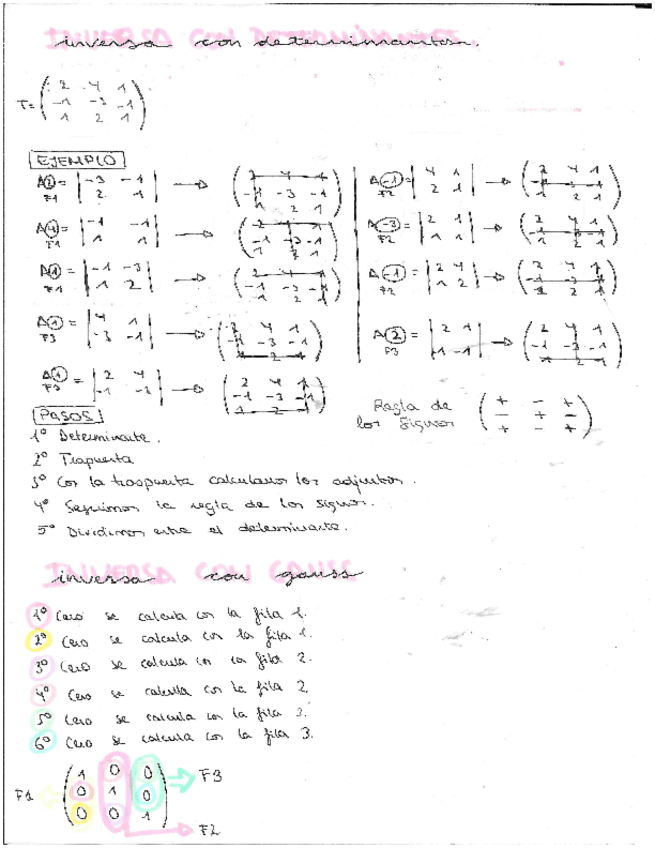 inversa con determinantes.
T = ( 2 4 1
-1 -3 -1
1 2 1 )
EJEMPLO
A② = | -3 -1 | → ( 2 4 1
F1 | 2 1 | -1 -3 -1
1 2 1 )
A④ = | -1 -1 | → ( 2 4 1
F1 | 1 1 | -1 -3 -1
1 2 1 )
A① = | -1 -3 | → ( 2 4 1
F1 | 1 2 | -1 -3 -1
1 2 1 )
A① = | 4 1 | → ( 2 4 1
F3 | -3 -1 | -1 -3 -1
1 2 1 )
A① = | 2 4 | → ( 2 4 1
F3 | -1 -3 | -1 -3 -1
1 2 1 )
A(-1) = | 4 1 | → ( 2 4 1
F2 | 2 1 | -1 -3 -1
1 2 1 )
A(-3) = | 2 1 | → ( 2 4 1
F2 | 1 1 | -1 -3 -1
1 2 1 )
A(-1) = | 2 4 | → ( 2 4 1
F2 | 1 2 | -1 -3 -1
1 2 1 )
A② = | 2 1 | → ( 2 4 1
F3 | 1 -1 | -1 -3 -1
1 2 1 )
Regla de
los signos
( + - +
- + -
+ - + )
PASOS
1º Determinante.
2º Traspuesta
3º Con la traspuesta calculamos los adjuntos.
4º Seguimos la regla de los signos.
5º Dividimos entre el determinante.
INVERSA CON GAUSS
inversa con gauss
1º Cero se calcula con la fila 1.
2º Cero se calcula con la fila 1.
3º Cero se calcula con la fila 2.
4º Cero se calcula con la fila 2.
5º Cero se calcula con la fila 3.
6º Cero se calcula con la fila 3.
F1 ( 1 0 0
0 1 0
0 0 1 ) → F3
→ F2